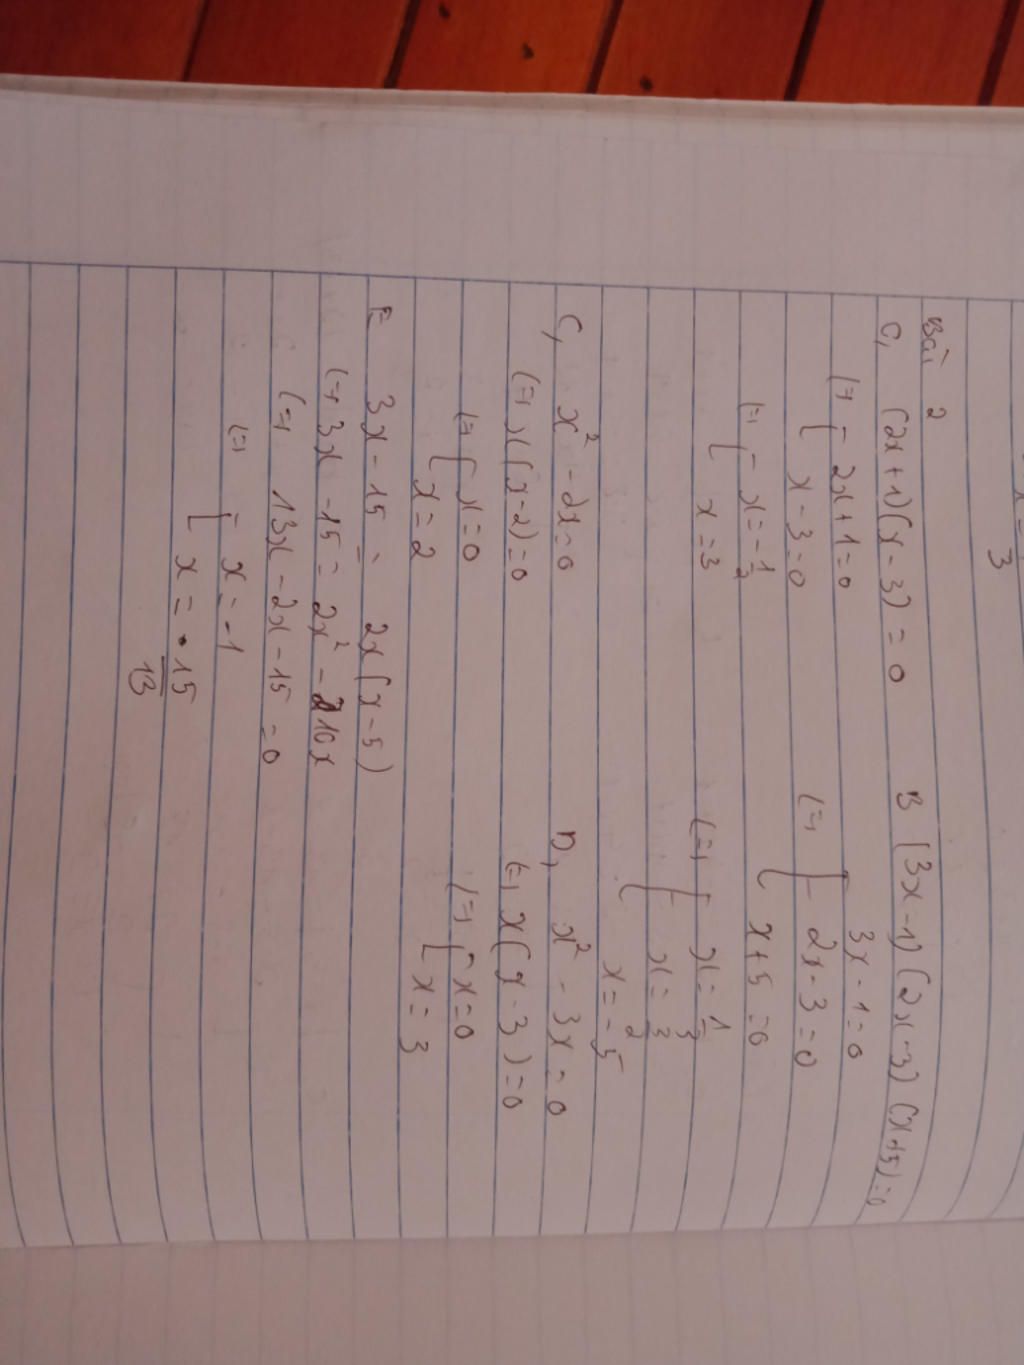 3
Bài 2
C, (2x+1)(x-3) = 0
(=) [ 2x+1=0
x-3=0
(=) [ x=-1/2
x=3
B (3x-1)(2x-3)(x+5)=0
3x-1=0
(=) [ 2x-3=0
x+5=0
(=) [ x=1/3
x=3/2
x=-5
C, x²-2x=0
(=) x(x-2)=0
(=) [ x=0
x=2
D, x²-3x=0
(=) x(x-3)=0
(=) [ x=0
x=3
E 3x-15= 2x(x-5)
(=) 3x-15= 2x²-10x
(=) 13x-2x-15=0
(=) [ x=-1
x=15/13